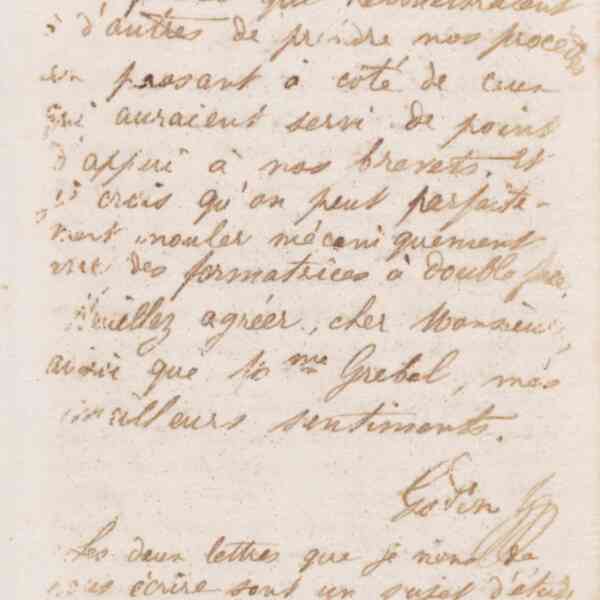 qui
d'autres de prendre nos procédés
en passant à coté de ceux
qui auraient servi de point
d'appui à nos brevets. Et
je crois qu'on peut parfaite-
ment mouler mécaniquement
avec des formatrices à double face.
Veuillez agréer, cher Monsieur,
ainsi que Mme Grebel, mes
meilleurs sentiments.
Godin
Les deux lettres que je viens de
vous écrire sont un sujet d'étude